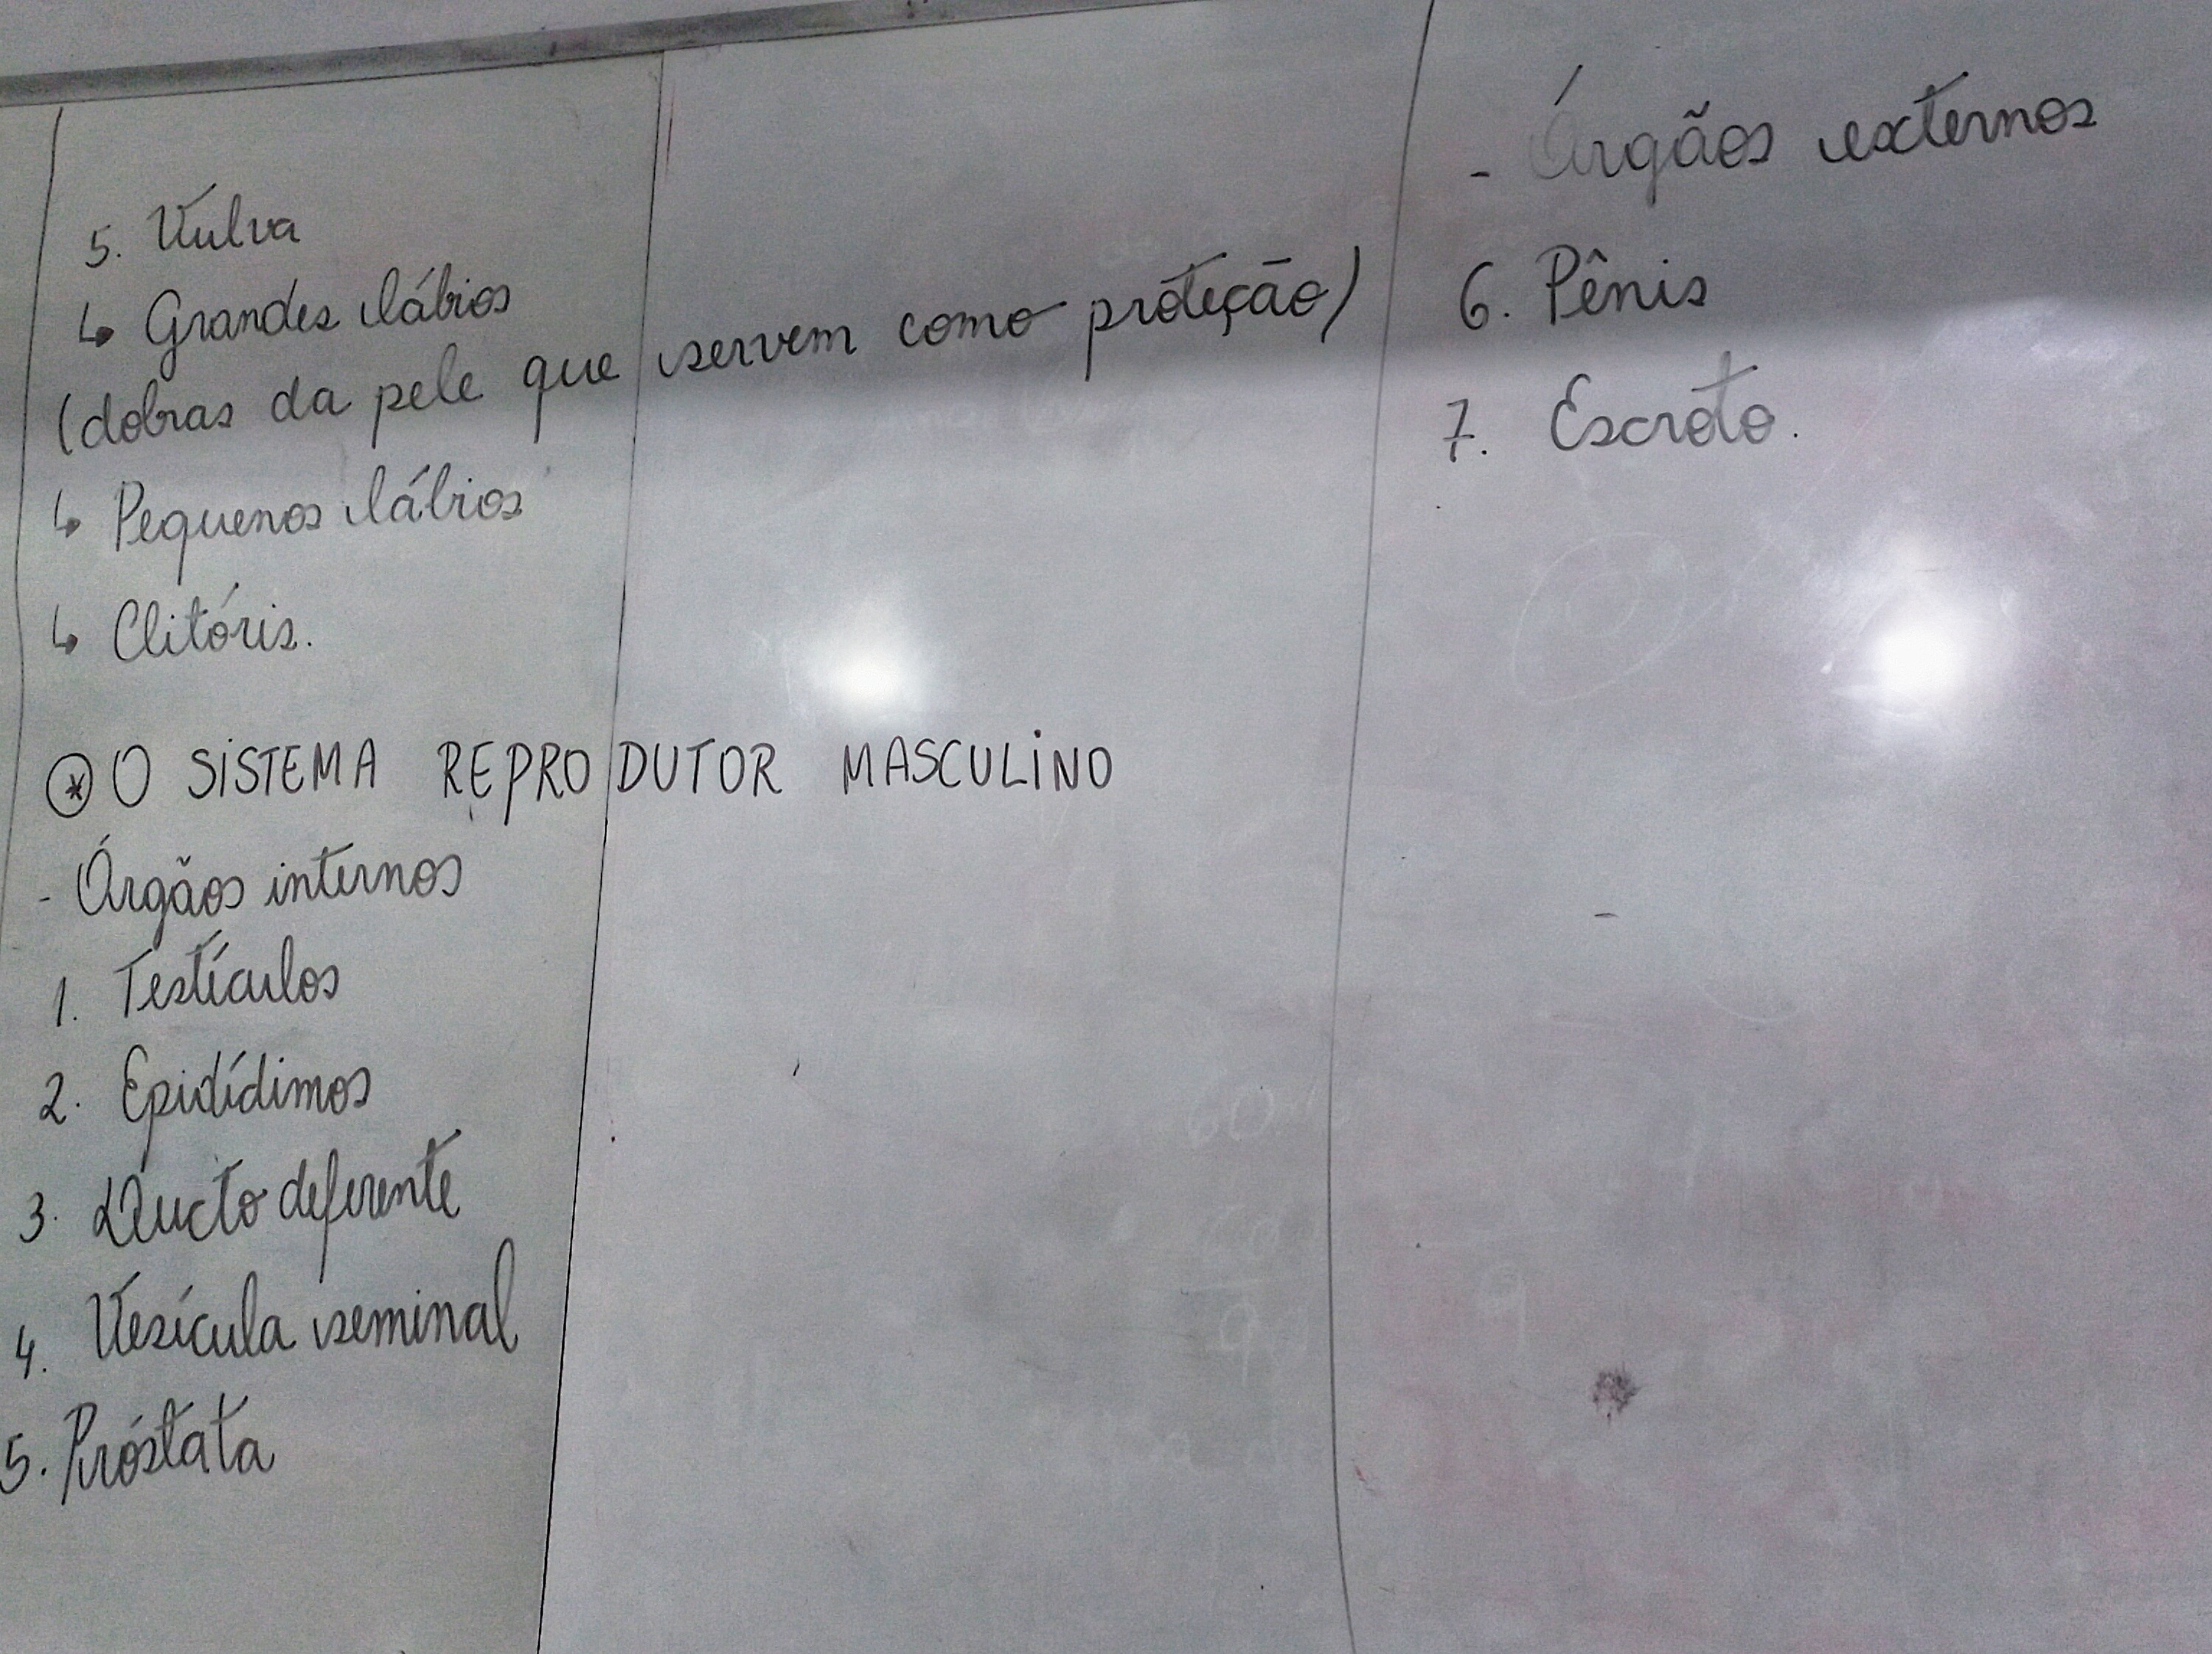 5. Vulva
↳ Grandes lábios
(dobras da pele que servem como proteção)
↳ Pequenos lábios
↳ Clitóris.
⊛ O SISTEMA REPRODUTOR MASCULINO
- Órgãos internos
1. Testículos
2. Epidídimos
3. Ducto deferente
4. Vesícula seminal
5. Próstata
- Órgãos externos
6. Pênis
7. Escroto.